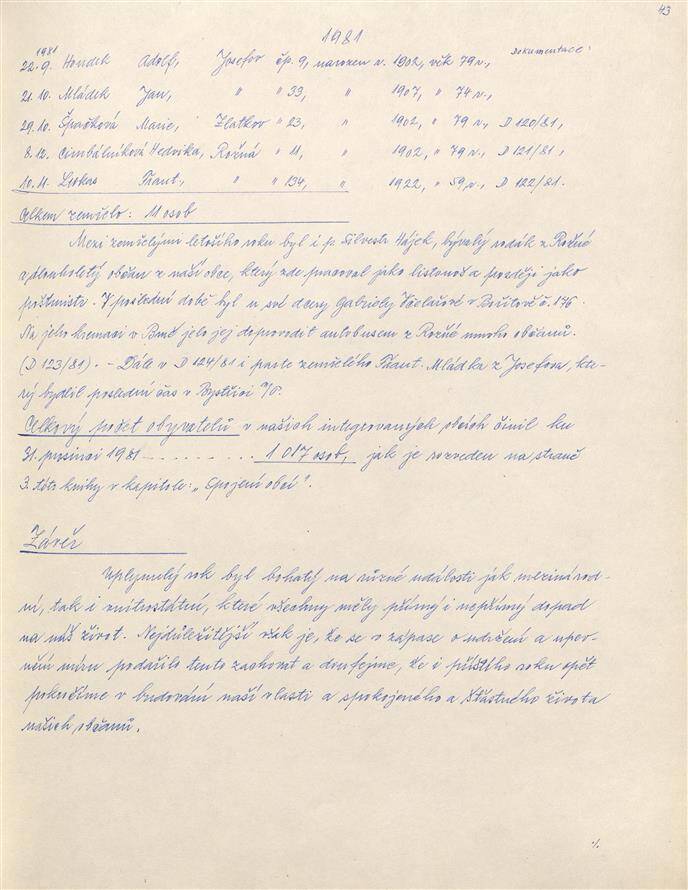 43
1981
1981 Dokumentace:
22.9. Hondek Adolf, Josefov čp. 9, narozen r. 1902, věk 79 r.,
21.10. Mládek Jan, " " 33, " 1907, " 74 r.,
29.10. Špačková Marie, Zlatkov " 23, " 1902, " 79 r., D 120/81,
8.12. Cimbálníková Hedvika, Rožná " 11, " 1902, " 79 r., D 121/81,
10.11. Liškas Frant., " " 134, " 1922, " 59 r., D 122/81.
Celkem zemřelo: 11 osob
Mezi zemřelými letošího roku byl i p. Silvestr Hájek, bývalý rodák z Rožné
a dlouholetý občan z naší obce, který zde pracoval jako listonoš a později jako
poštmistr. V poslední době byl u své dcery Gabriely v Bořitově č. 176.
Na jeho kremaci v Brně jelo jej doprovodit autobusem z Rožné mnoho občanů.
(D 123/81). - Dále v D 124/81 i parte zemřelého Frant. Mládka z Josefova, kte-
rý bydlil poslední čas v Bystřici n/P.
Celkový počet obyvatelů v našich integrovaných obcích činil ku
31. prosinci 1981 - - - - . . . . . . 1 017 osob, jak je rozveden na straně
3. této knihy v kapitole: „Spojení obcí".
Závěr
Uplynulý rok byl bohatý na různé události jak mezinárod-
ní, tak i vnitrostátní, které všechny měly přímý i nepřímý dopad
na náš život. Nejdůležitější však je, že se v zápase o udržení a upev-
nění míru podařilo tento zachovat a doufejme, že i příštího roku opět
pokročíme v budování naší vlasti a spokojeného a šťastného života
našich občanů.
./.